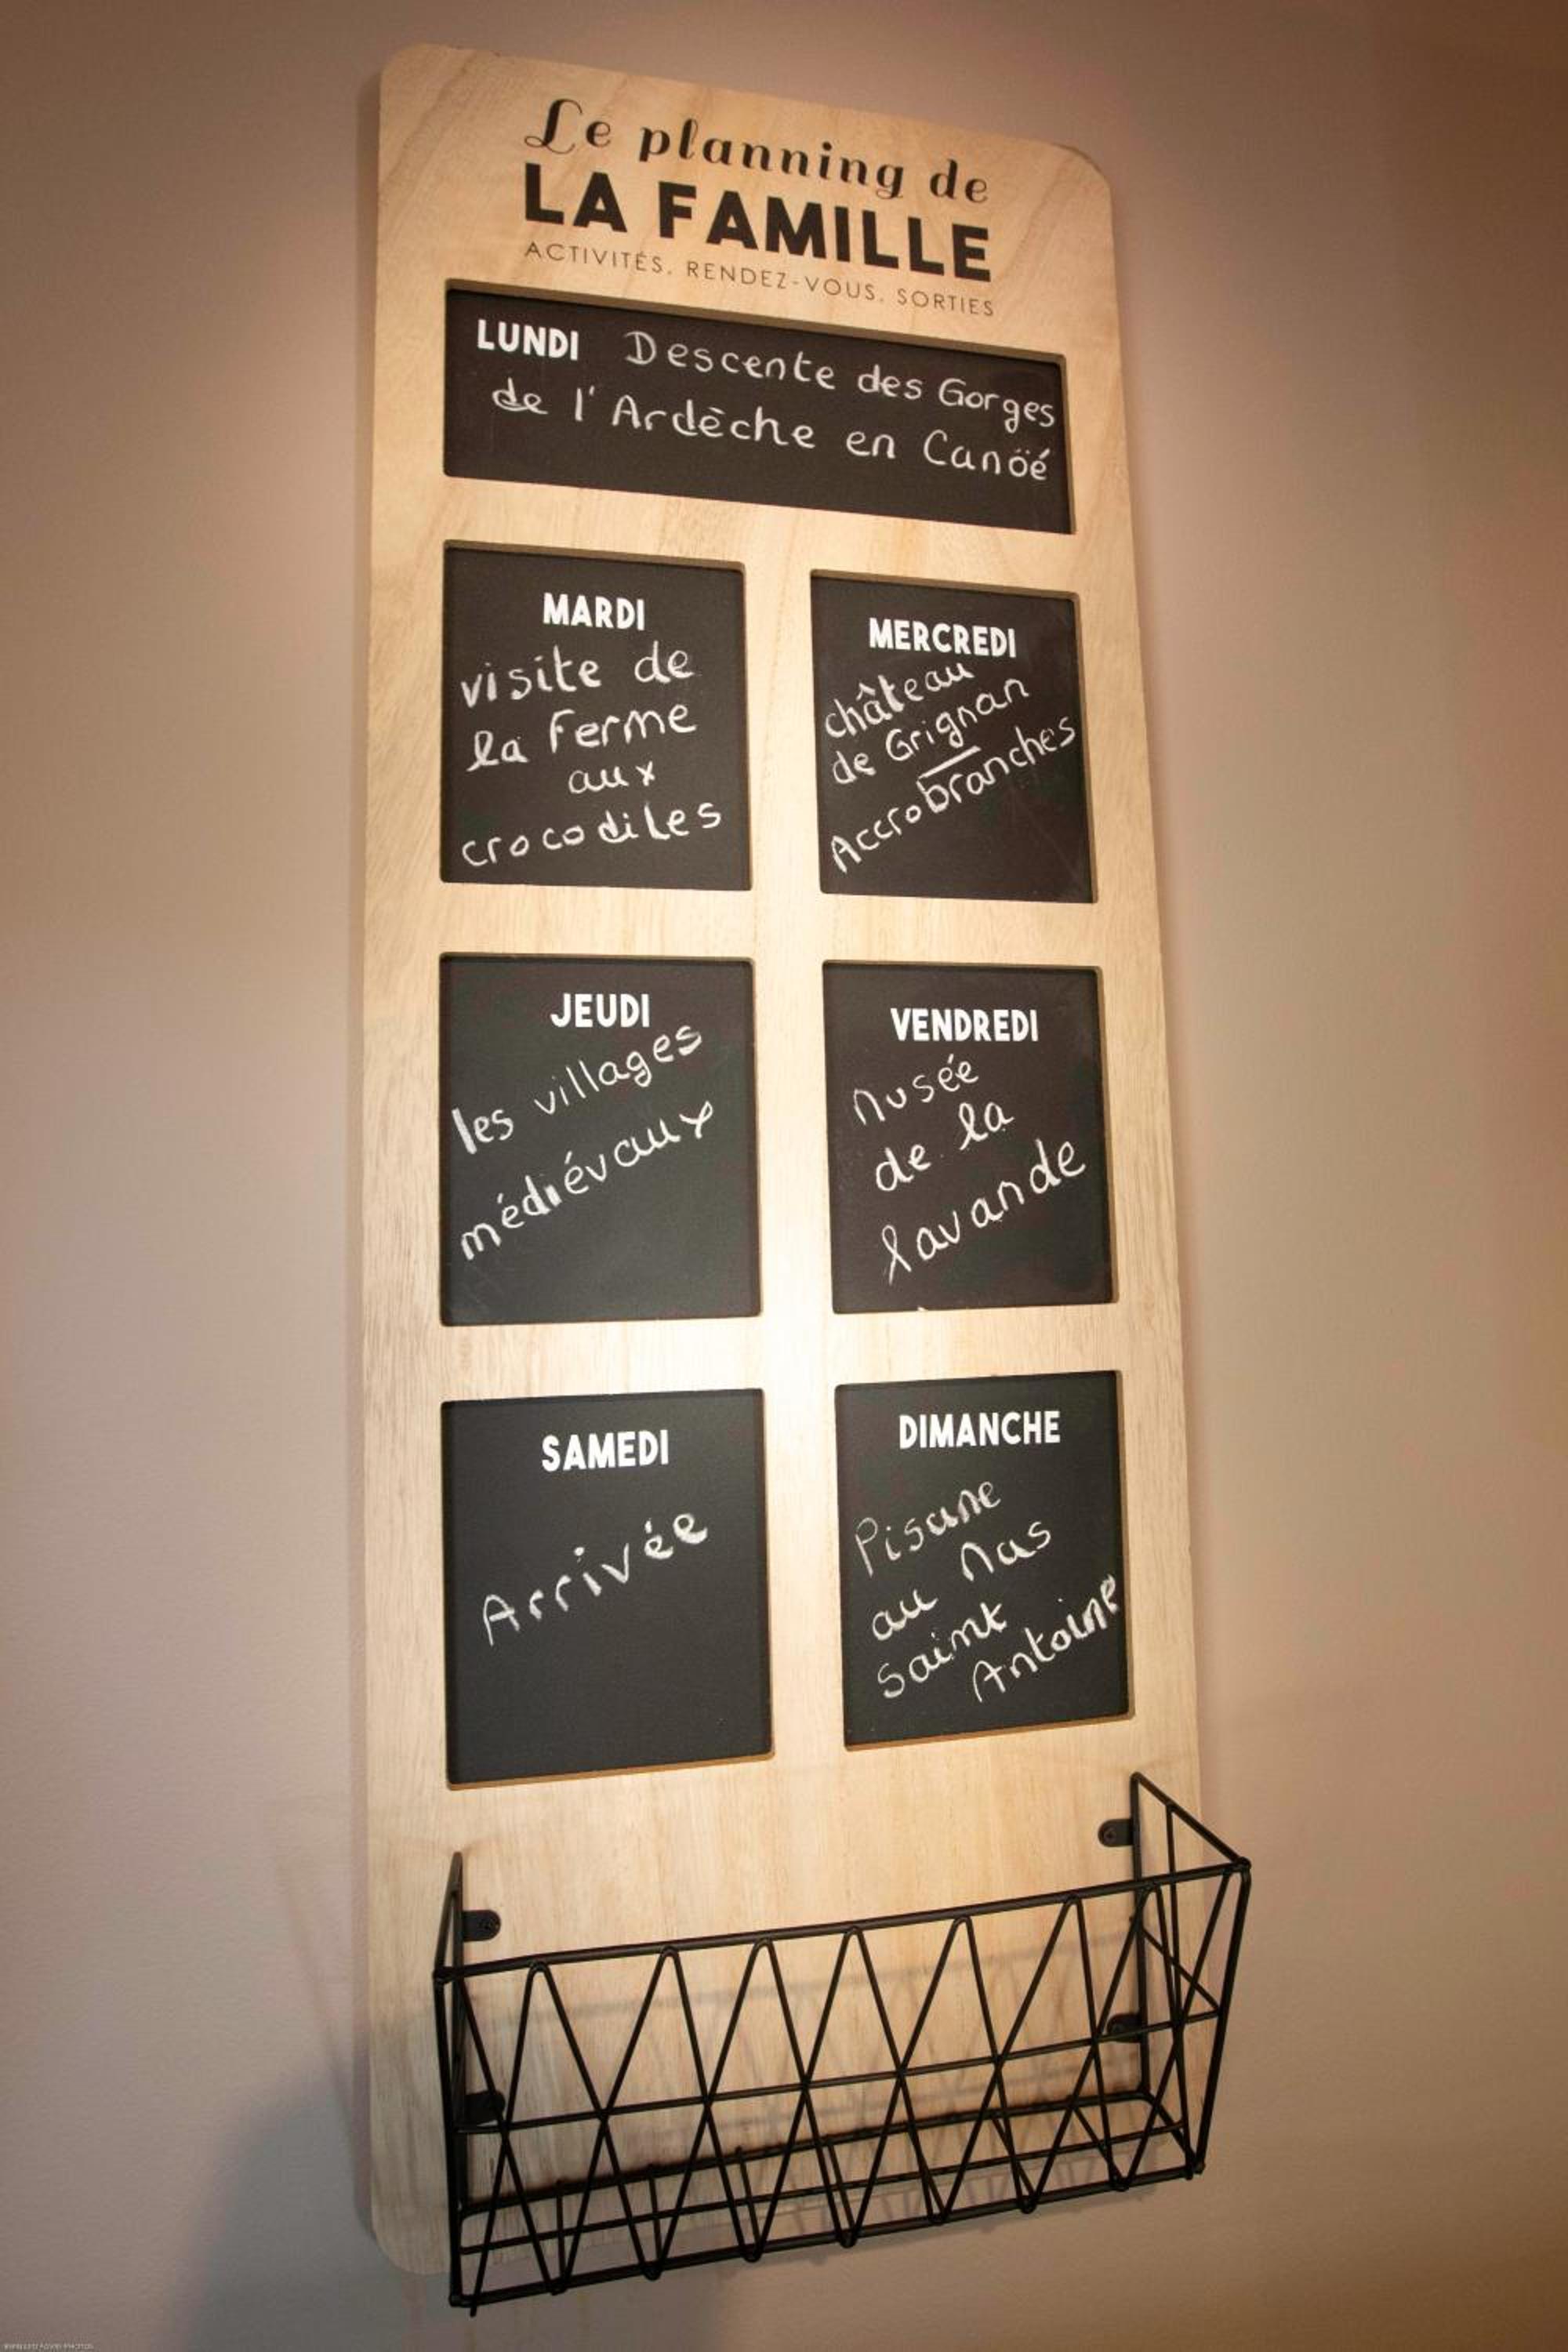 Le planning de
LA FAMILLE
ACTIVITÉS, RENDEZ-VOUS, SORTIES
LUNDI Descente des Gorges
de l'Ardèche en Canöé
MARDI
visite de
la Ferme
aux
crocodiles
MERCREDI
château
de Grignan
Accrobranches
JEUDI
les villages
médiévaux
VENDREDI
Musée
de la
lavande
SAMEDI
Arrivée
DIMANCHE
Piscine
au Mas
Saint
Antoine